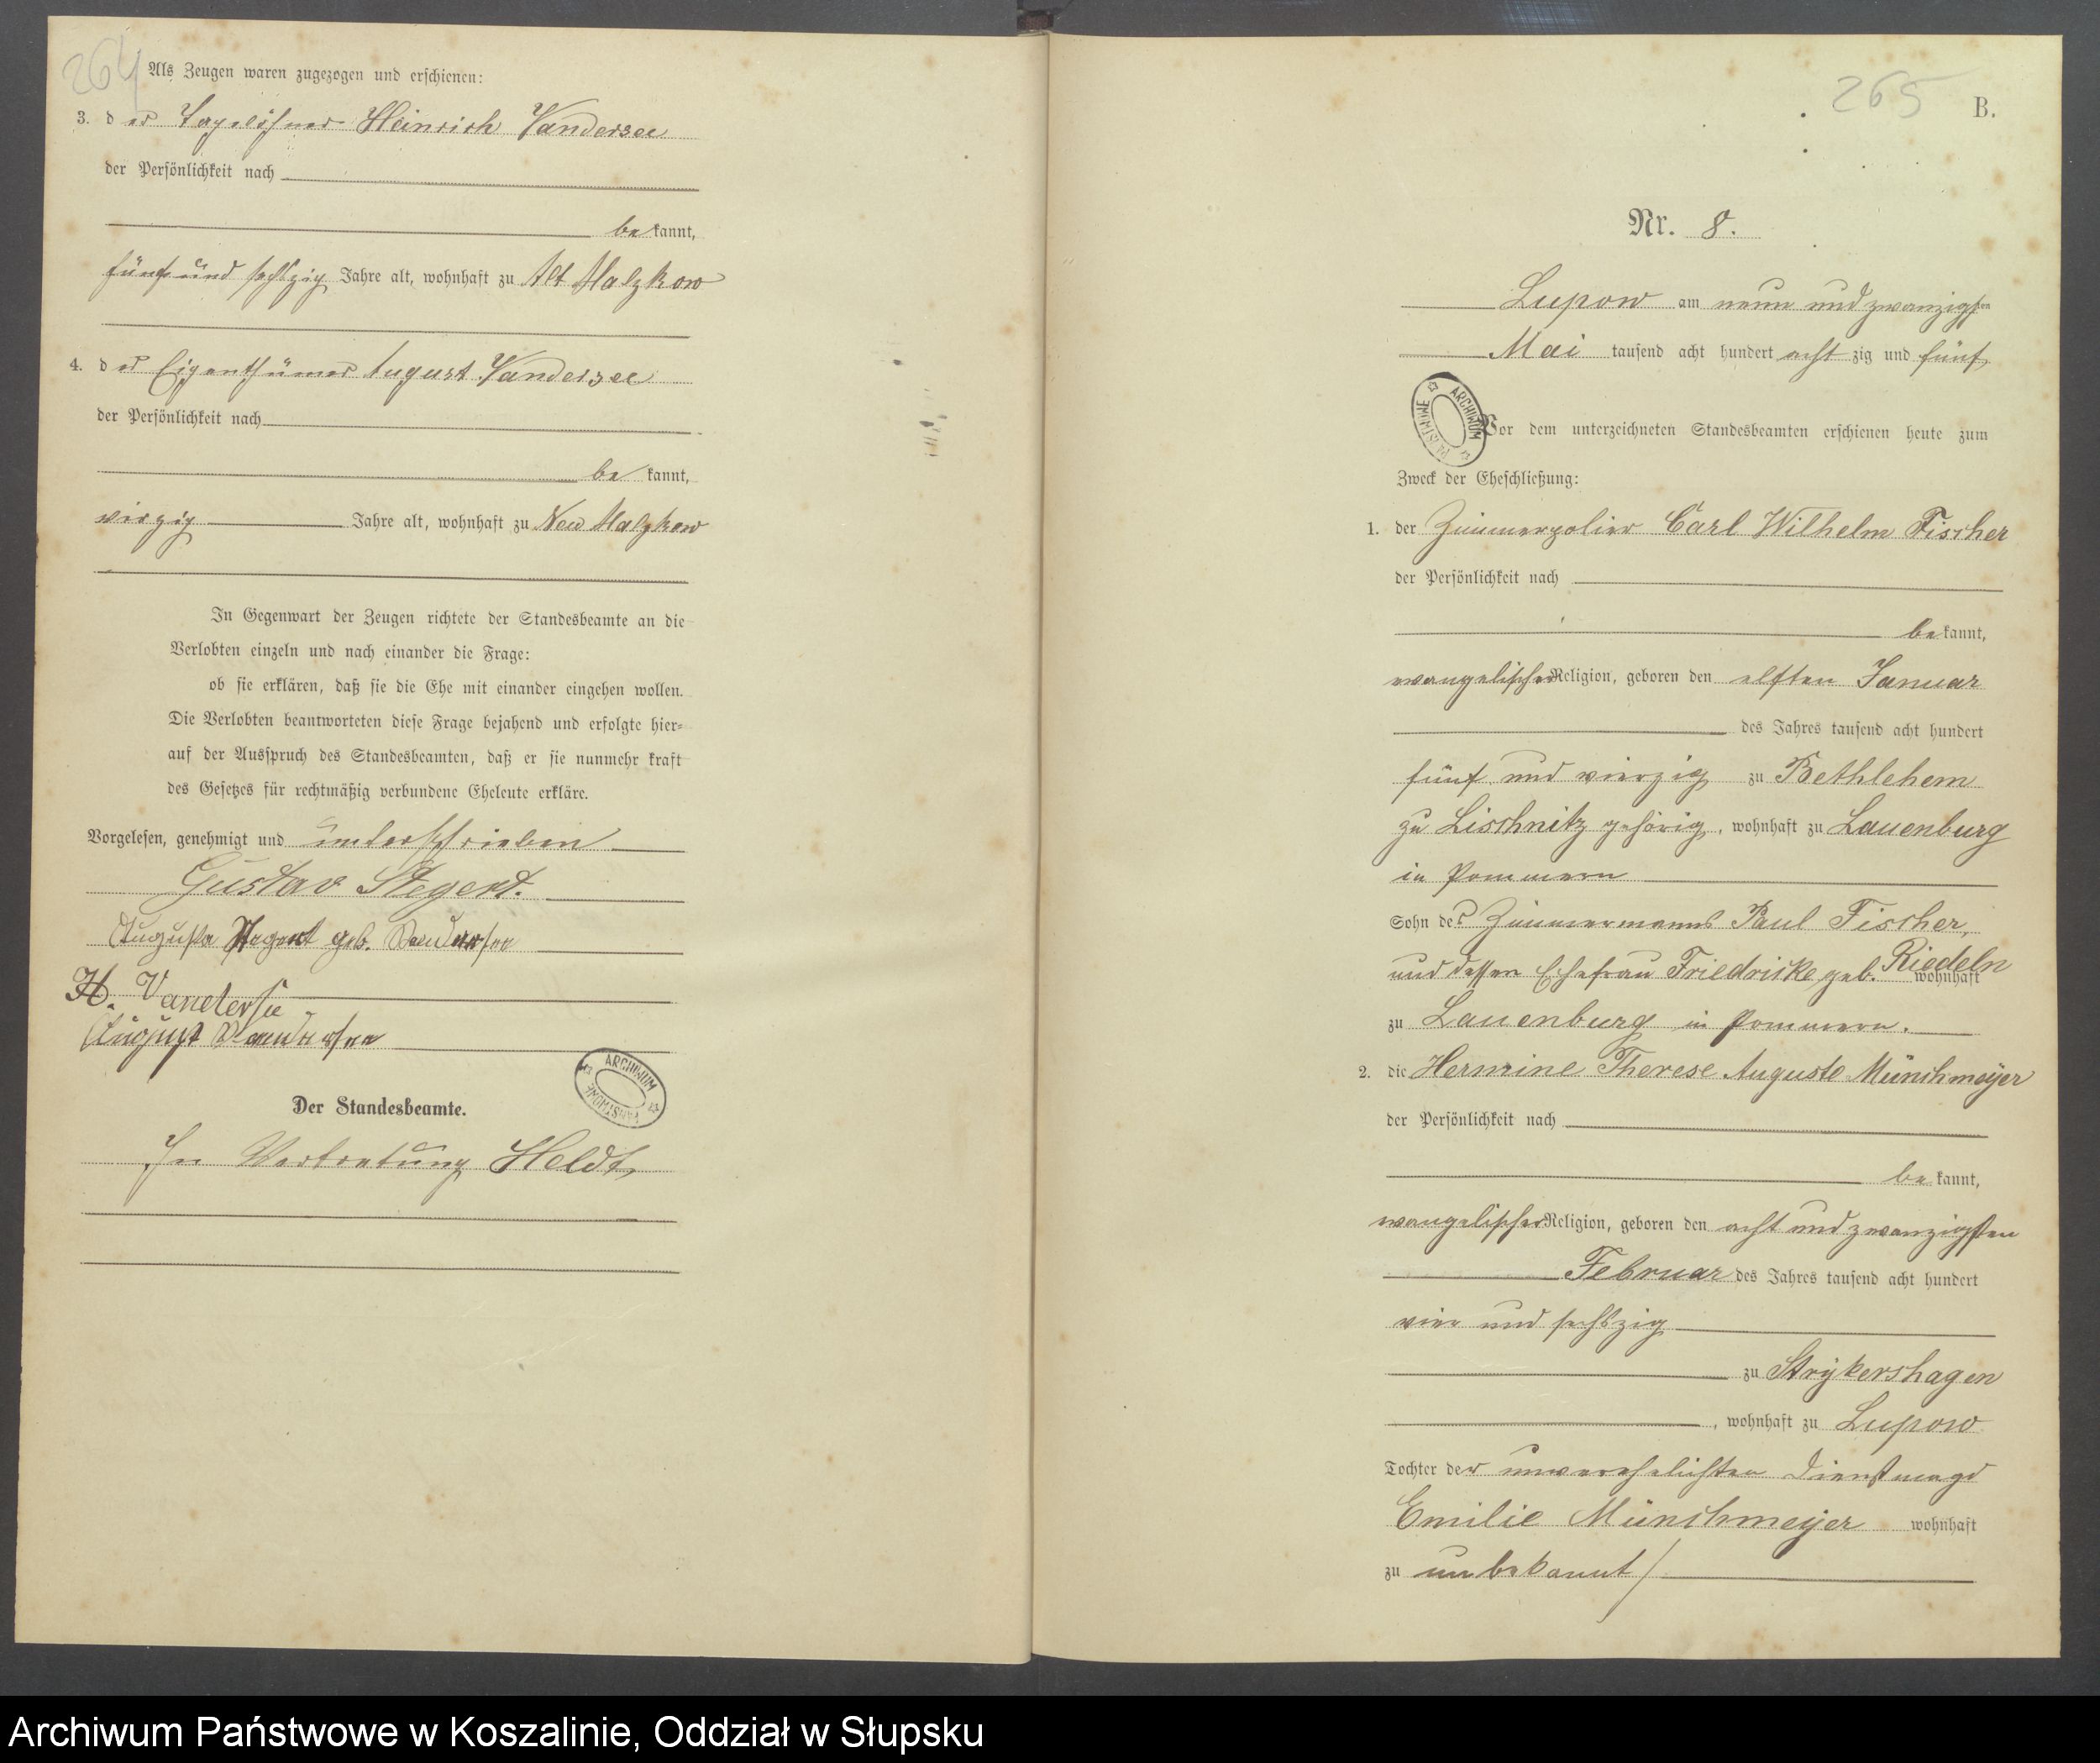 264
Als Zeugen waren zugezogen und erschienen:
3. der Tagelöhner Heinrich Vandersee
der Persönlichkeit nach
bekannt,
fünf und sechszig Jahre alt, wohnhaft zu Alt Malzkow
4. der Eigenthümer August Vandersee
der Persönlichkeit nach
bekannt,
vierzig Jahre alt, wohnhaft zu Neu Malzkow
In Gegenwart der Zeugen richtete der Standesbeamte an die
Verlobten einzeln und nach einander die Frage:
ob sie erklären, daß sie die Ehe mit einander eingehen wollen.
Die Verlobten beantworteten diese Frage bejahend und erfolgte hier-
auf der Ausspruch des Standesbeamten, daß er sie nunmehr kraft
des Gesetzes für rechtmäßig verbundene Eheleute erkläre.
Vorgelesen, genehmigt und unterschrieben
Gustav Stegert.
Auguste Stegert geb. Vandersee
H. Vandersee
August Vandersee
ARCHIWUM PAŃSTWOWE
Der Standesbeamte.
In Vertretung Heldt
265
B.
Nr. 8.
Lupow am neun und zwanzigsten
Mai tausend acht hundert acht zig und fünf
ARCHIWUM PAŃSTWOWE
Vor dem unterzeichneten Standesbeamten erschienen heute zum
Zweck der Eheschließung:
1. der Zimmerpolier Carl Wilhelm Fischer
der Persönlichkeit nach
bekannt,
evangelischer Religion, geboren den elften Januar
des Jahres tausend acht hundert
fünf und vierzig zu Bethlehem
zu Lischnitz gehörig, wohnhaft zu Lauenburg
in Pommern
Sohn des Zimmermanns Paul Fischer,
und dessen Ehefrau Friedrike geb. Riedeln wohnhaft
zu Lauenburg in Pommern.
2. die Hermine Therese Auguste Münchmeÿer
der Persönlichkeit nach
bekannt,
evangelischer Religion, geboren den acht und zwanzigsten
Februar des Jahres tausend acht hundert
vier und sechszig
zu Strÿkershagen
, wohnhaft zu Lupow
Tochter der unverehelichten Dienstmagd
Emilie Münchmeÿer wohnhaft
zu unbekannt /
Archiwum Państwowe w Koszalinie, Oddział w Słupsku